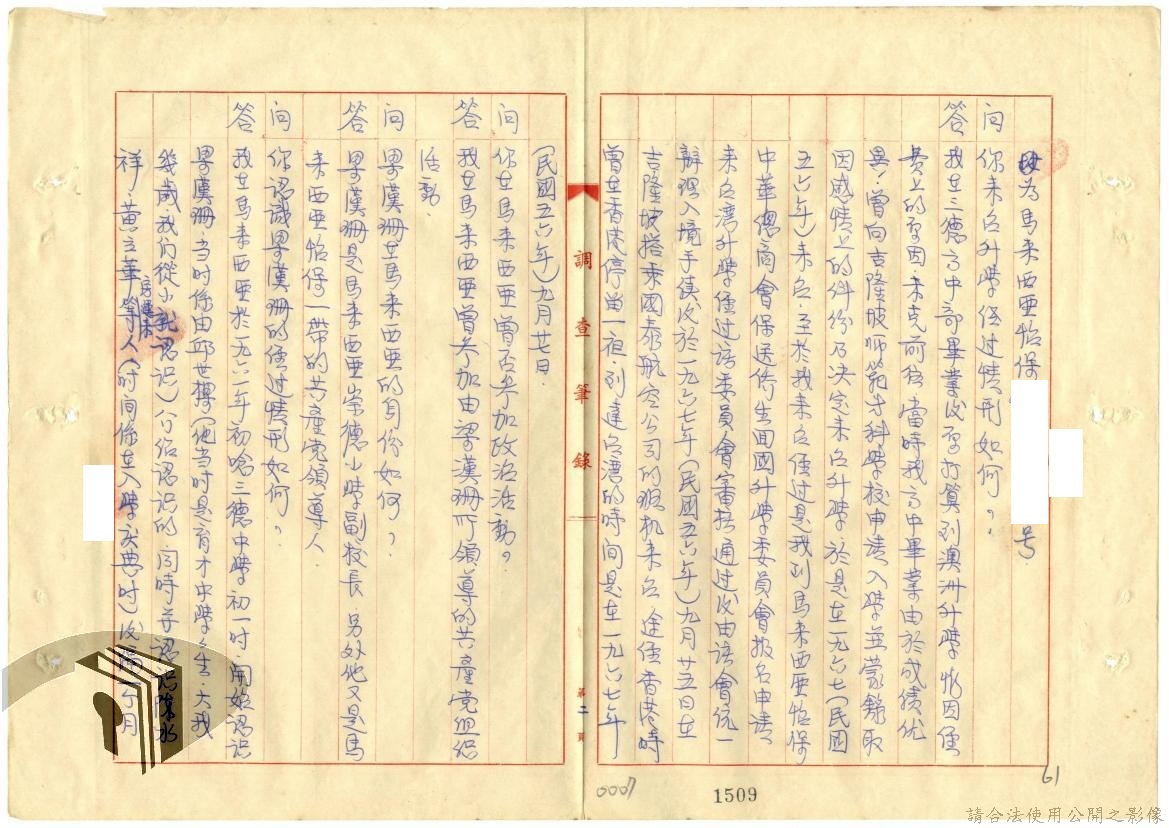 址为馬来西亞怡保 号
问 你来台升學经过情形如何？
答 我在三德高中部畢業后原打算到澳洲升學、惟因经
费上的原因、未克前往、當時我高中畢業由於成績优
異、曾向吉隆坡师範专科學校申请入學並蒙錄取
因感情上的糾纷乃决定来台升學、於是在一九六七（民國
五六年）来台、至於我来台经过是我到馬来西亞怡保
中華總商會保送侨生回國升學委員會报名申请
来台灣升學经过该委員會審核通过后由该會統一
辦理入境手续后於一九六七年（民國五六年）九月廿五日在
吉隆坡搭乘國泰航空公司的班机来台、途经香港時
曾在香港停留一夜、到達台灣的時间是在一九六七年
調查筆錄
第二頁
（民國五六年）九月廿日．
问 你在馬来西亞曾否參加政治活動？
答 我在馬来西亞曾參加由梁漢珊所領導的共產党组织
活動．
问 梁漢珊在馬来西亞的身份如何？
答 梁漢珊是馬来西亞崇德小學副校長、另外他又是馬
来西亞怡保一帶的共產党領導人
问 你認識梁漢珊的经过情形如何？
答 我在馬来西亞於一九六一年初唸三德中學初一时、開始認识
梁漢珊、当时係由邱世樑（他当时是育才中學学生、大我
幾歲、我们從小就認识）介绍認识的、同時並認识陈水
祥、黄立華、房運木等人（时间係在入學庆典时）后隔一个月
0007
1509
61
請合法使用公開之影像